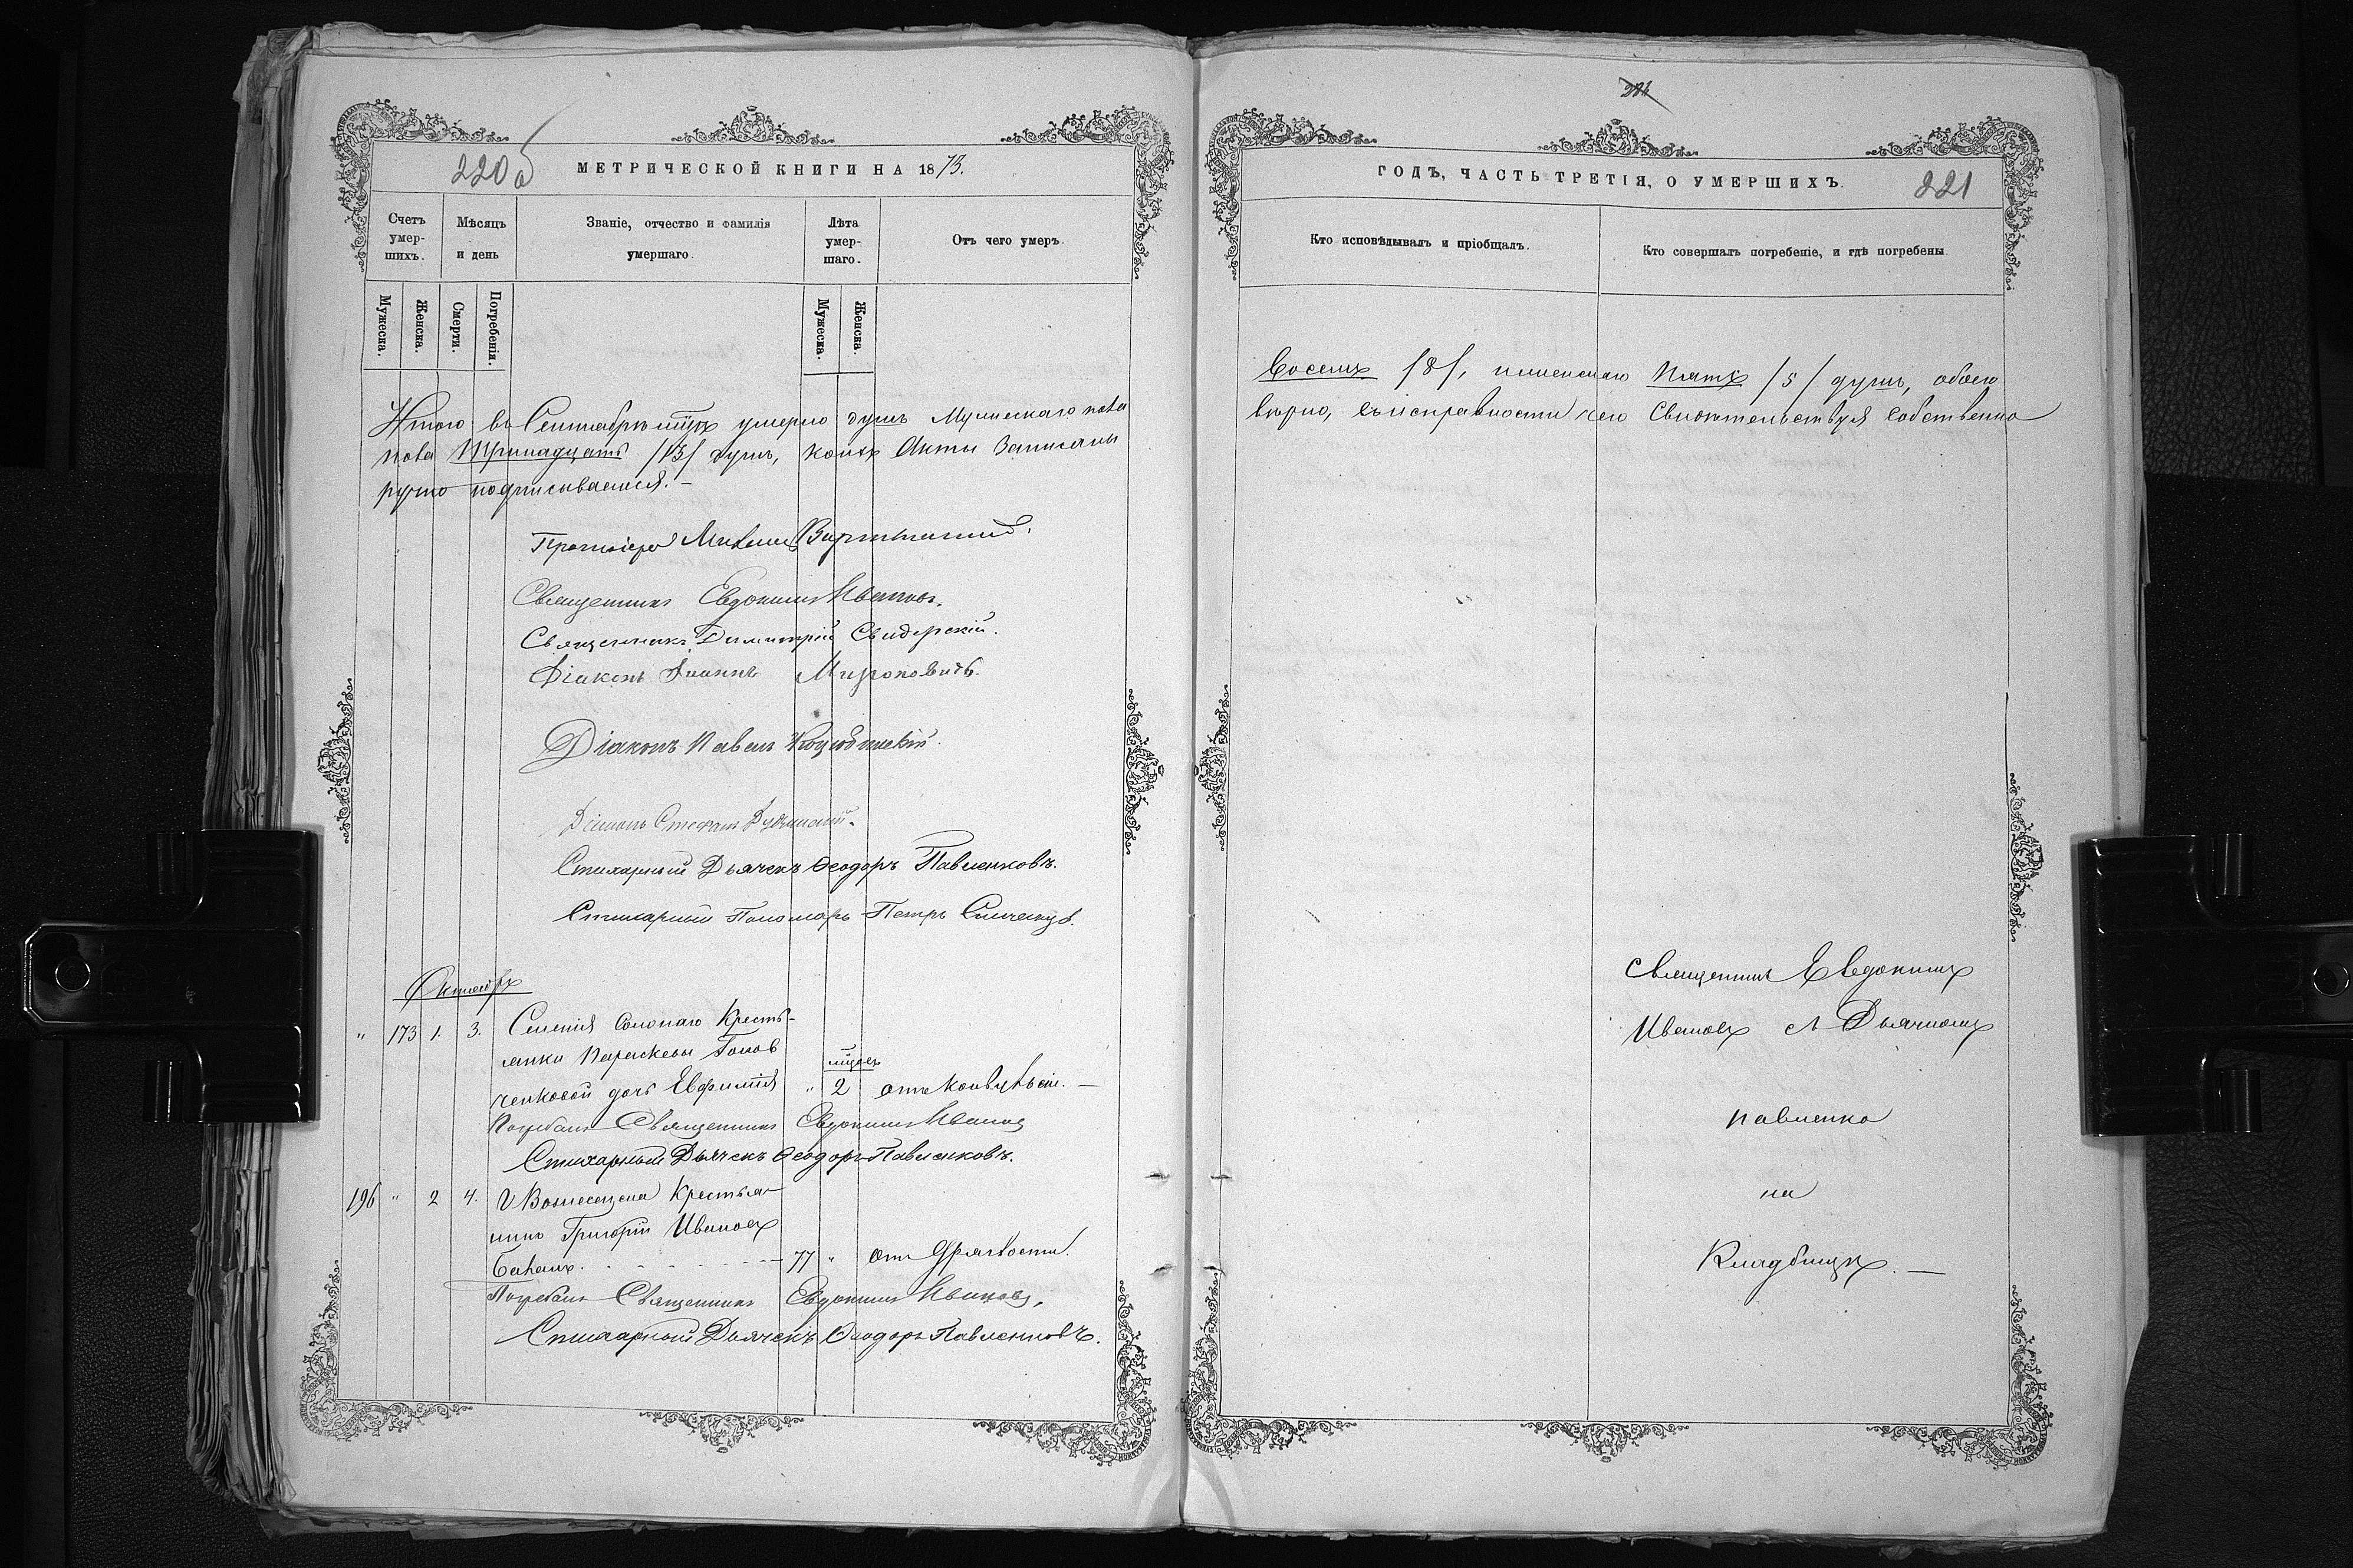 220 б
МЕТРИЧЕСКОЙ КНИГИ НА 1873.
Счетъ умер-шихъ.
Мѣсяцъ и день
Званіе, отчество и фамилія умершаго.
Лѣта умер-шаго.
Отъ чего умеръ.
Мужеска.
Женска.
Смерти.
Погребенія.
Мужеска.
Женска.
Итого въ Сентябрѣ умерло душъ Мужескаго пола
пола Тринадцать /13/ душъ, коихъ Акты Записаны
ручно подписываемся. –
Протоіерей Михаилъ
Священникъ Евдокимъ Ивановъ.
Священникъ Димитрій Свидерскій.
Діаконъ Іоаннъ Мироновичъ.
Діаконъ Павелъ Коцюбинскій.
Діаконъ Стефанъ
Стихарный Дьячекъ Ѳеодоръ Павленковъ.
Стихарный Пономарь Петръ
Октябрь
" 173 1. 3. Селенія Солонаго Кресть-
янки Параскевы Попов
ченковой дочь Евфимія " 2 отъ Конвульсіи. —
Погребалъ Священникъ Евдокимъ Ивановъ
Стихарный Дьячекъ Ѳеодоръ Павленковъ.
196 " 2 4. Г. Вознесенска Крестья-
нинъ Григорій Ивановъ
77 " отъ Дряхлости.
Погребалъ Священникъ Евдокимъ Ивановъ,
Стихарный Дьячекъ Ѳеодоръ Павленковъ.
ГОДЪ, ЧАСТЬ ТРЕТІЯ, О УМЕРШИХЪ.
221
Кто исповѣдывалъ и пріобщалъ.
Кто совершалъ погребеніе, и гдѣ погребены
Восемь /8/, женскаго Пять /5/ душъ, обоего
вѣрно, въ исправности чего Свидѣтельствуя Собственно
Священникъ Евдокимъ
Ивановъ съ Дьячкомъ
Павленко
на
Кладбищѣ. —